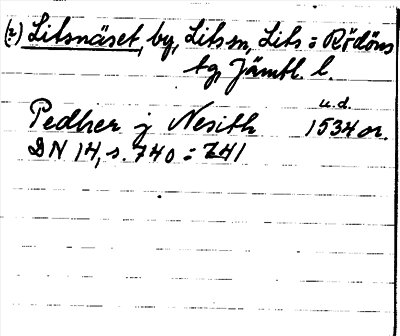 (2) Litsnäset, by, Lits sn, Lits = Rödöns
tg, Jämtl. l.
u. d.
Pedher j Nesith 1534 or.
DN 14, s. 740 = 741